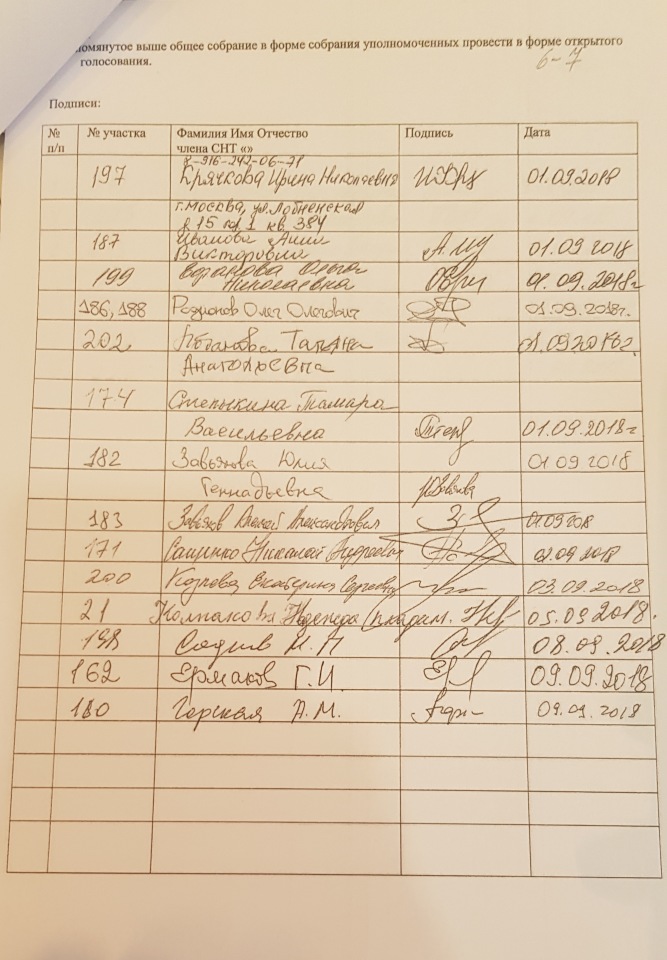 помянутое выше общее собрание в форме собрания уполномоченных провести в форме открытого
голосования.
6-7
Подписи:
№ п/п № участка Фамилия Имя Отчество члена СНТ «» Подпись Дата
8-916-242-06-71
197 Крячкова Ирина Николаевна 01.09.2018
г. Москва, ул. Лобненская
д 15 к 1 кв. 384
187 Иванова Анна
Викторовна 01.09 2018
199 Ольга
Николаевна 01.09.2018г
186, 188 Родионов Олег Олегович 01.09.2018г.
202 Татьяна 01.09.2018г.
Анатольевна
174 Степыкина Тамара
Васильевна 01.09.2018г
182 Завьялова Юлия 01 09 2018
Геннадьевна
183 Завьялов Алексей Александрович 01.09.2018
171 Сащенко Николай Андреевич 01.09.2018
200 Козлова Екатерина Сергеевна 03.09.2018
21 Колпакова Надежда 05.09.2018.
198 08.09.2018
162 Ермаков Г.И. 09.09.2018
180 Горская А.М. 09.09.2018